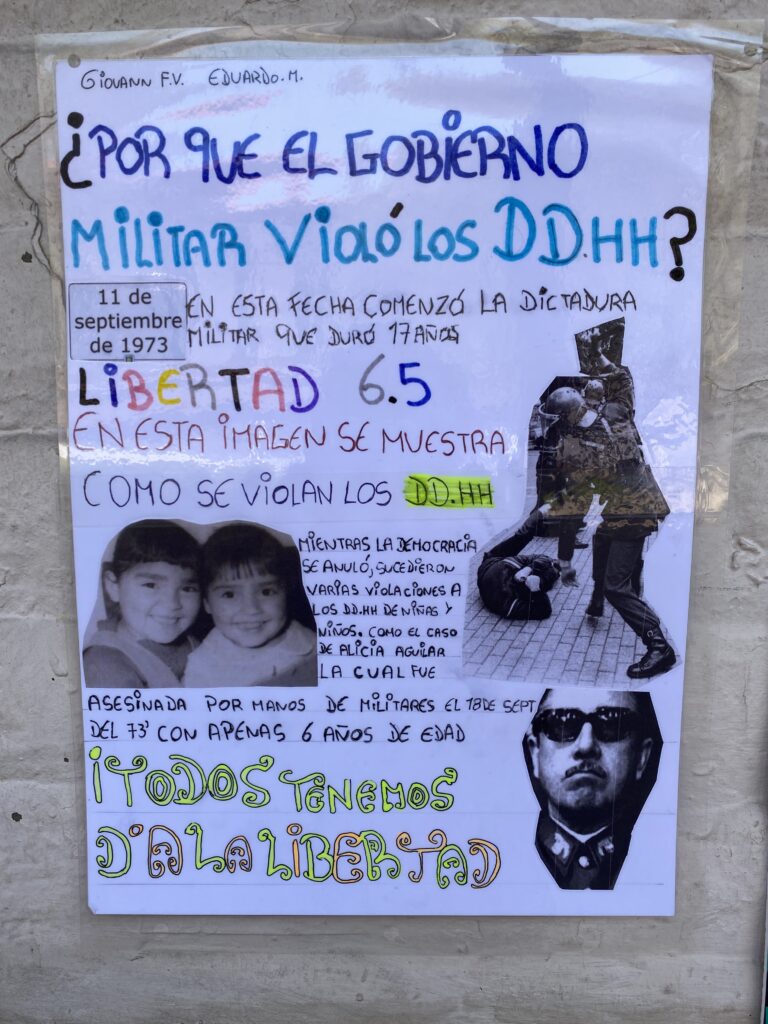 GIOVANN F.V. EDUARDO.M.
¿POR QUE EL GOBIERNO
MILITAR VIOLÓ LOS DD.HH?
11 de
septiembre
de 1973
EN ESTA FECHA COMENZÓ LA DICTADURA
MILITAR QUE DURÓ 17 AÑOS
LIBERTAD 6.5
EN ESTA IMAGEN SE MUESTRA
COMO SE VIOLAN LOS DD.HH
MIENTRAS LA DEMOCRACIA
SE ANULÓ, SUCEDIERON
VARIAS VIOLACIONES A
LOS DD.HH DE NIÑAS Y
NIÑOS. COMO EL CASO
DE ALICIA AGUILAR
LA CUAL FUE
ASESINADA POR MANOS DE MILITARES EL 18 DE SEPT
DEL 73' CON APENAS 6 AÑOS DE EDAD
¡TODOS TENEMOS
D' A LA LIBERTAD